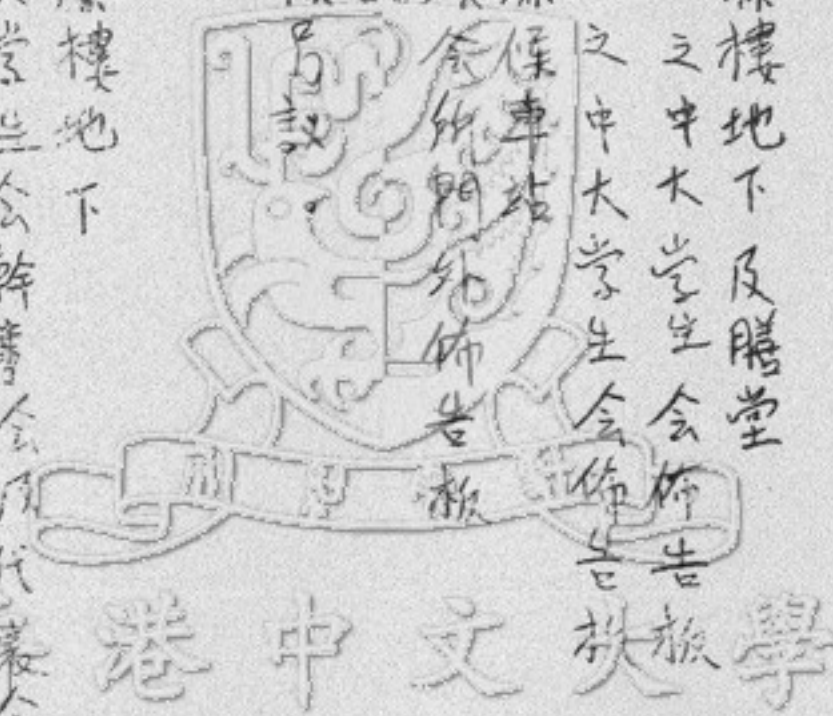 樓地下及膳堂
之中大学生会佈告板
之中大学生会佈告板
候車站
会所門外佈告板
局設
樓地下
学生会幹事会及代表会
港中文大學